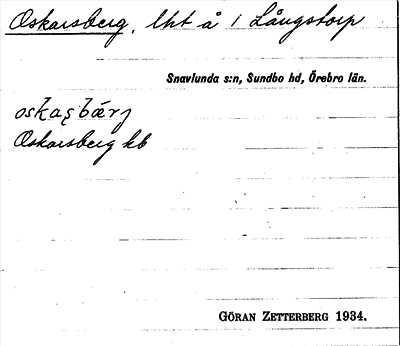 Oskarsberg, lht å 1 Långstorp
Snavlunda s:n, Sundbo hd, Örebro län.
oskaʂbærj
Oskarsberg kb
GÖRAN ZETTERBERG 1934.